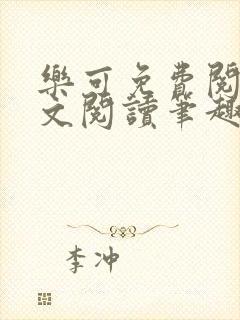 樂可免費閱
文閱讀筆趣
李冲